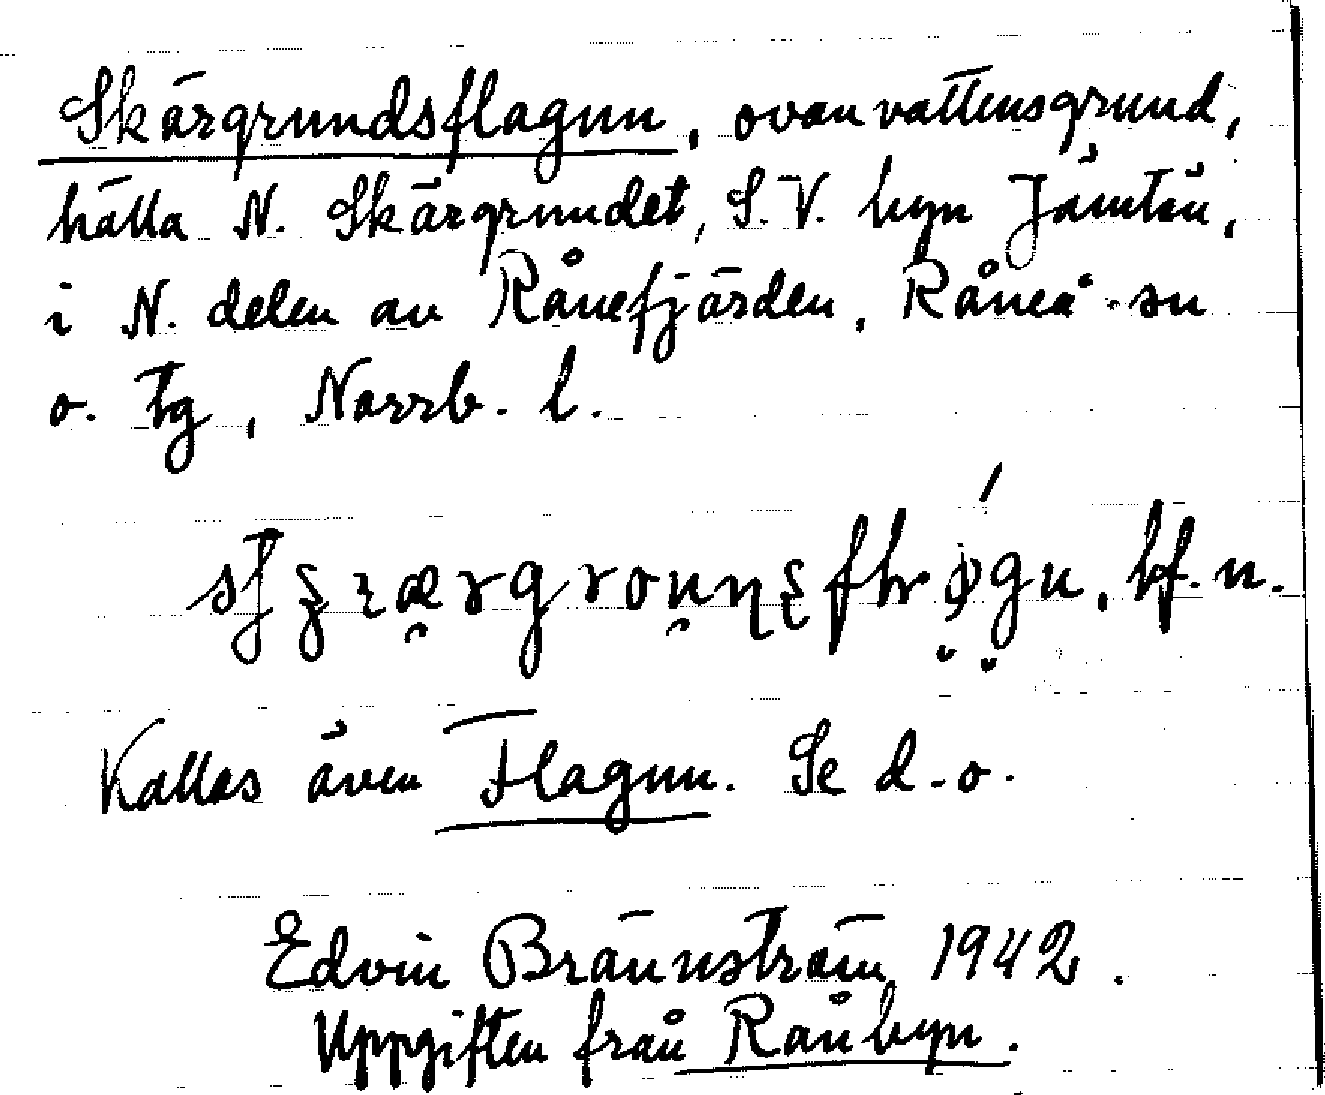 Skärgrundsflagnn, ovanvattensgrund,
hälla N. Skärgrundet, S.V. byn Jämtön,
i N. delen av Rånefjärden, Råneå sn
o. tg, Norrb. l.
bf. n.
Kallas även Flagnn. Se d. o.
Edvin Brännström 1942.
Uppgiften från Rånbyn.